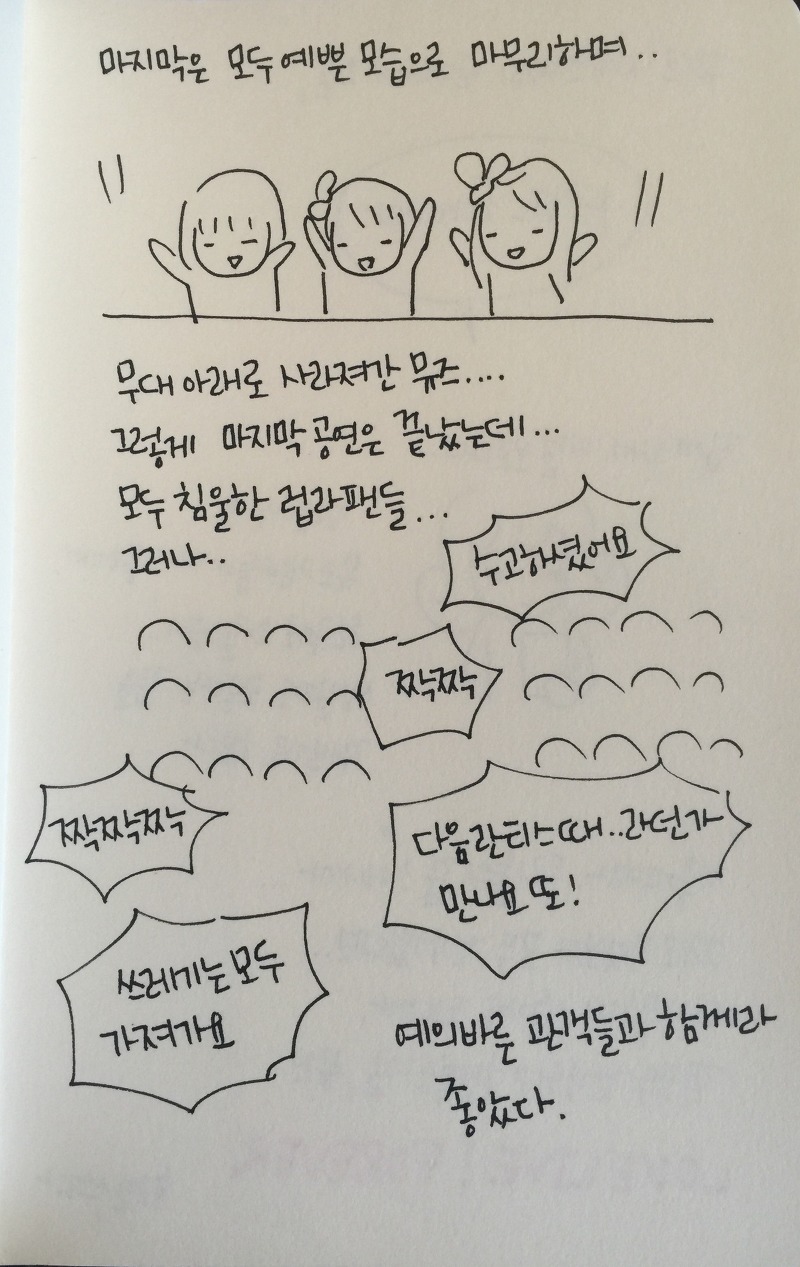 마지막은 모두 예쁜 모습으로 마무리하며..
무대 아래로 사라져간 뮤즈....
그렇게 마지막 공연은 끝났는데...
모두 침울한 럽라팬들...
그러나..
수고하셨어요
짝짝
짝짝짝
다음란티스때..라던가
만나요 또!
쓰레기는 모두
가져가요
예의바른 관객들과 함께라
좋았다.